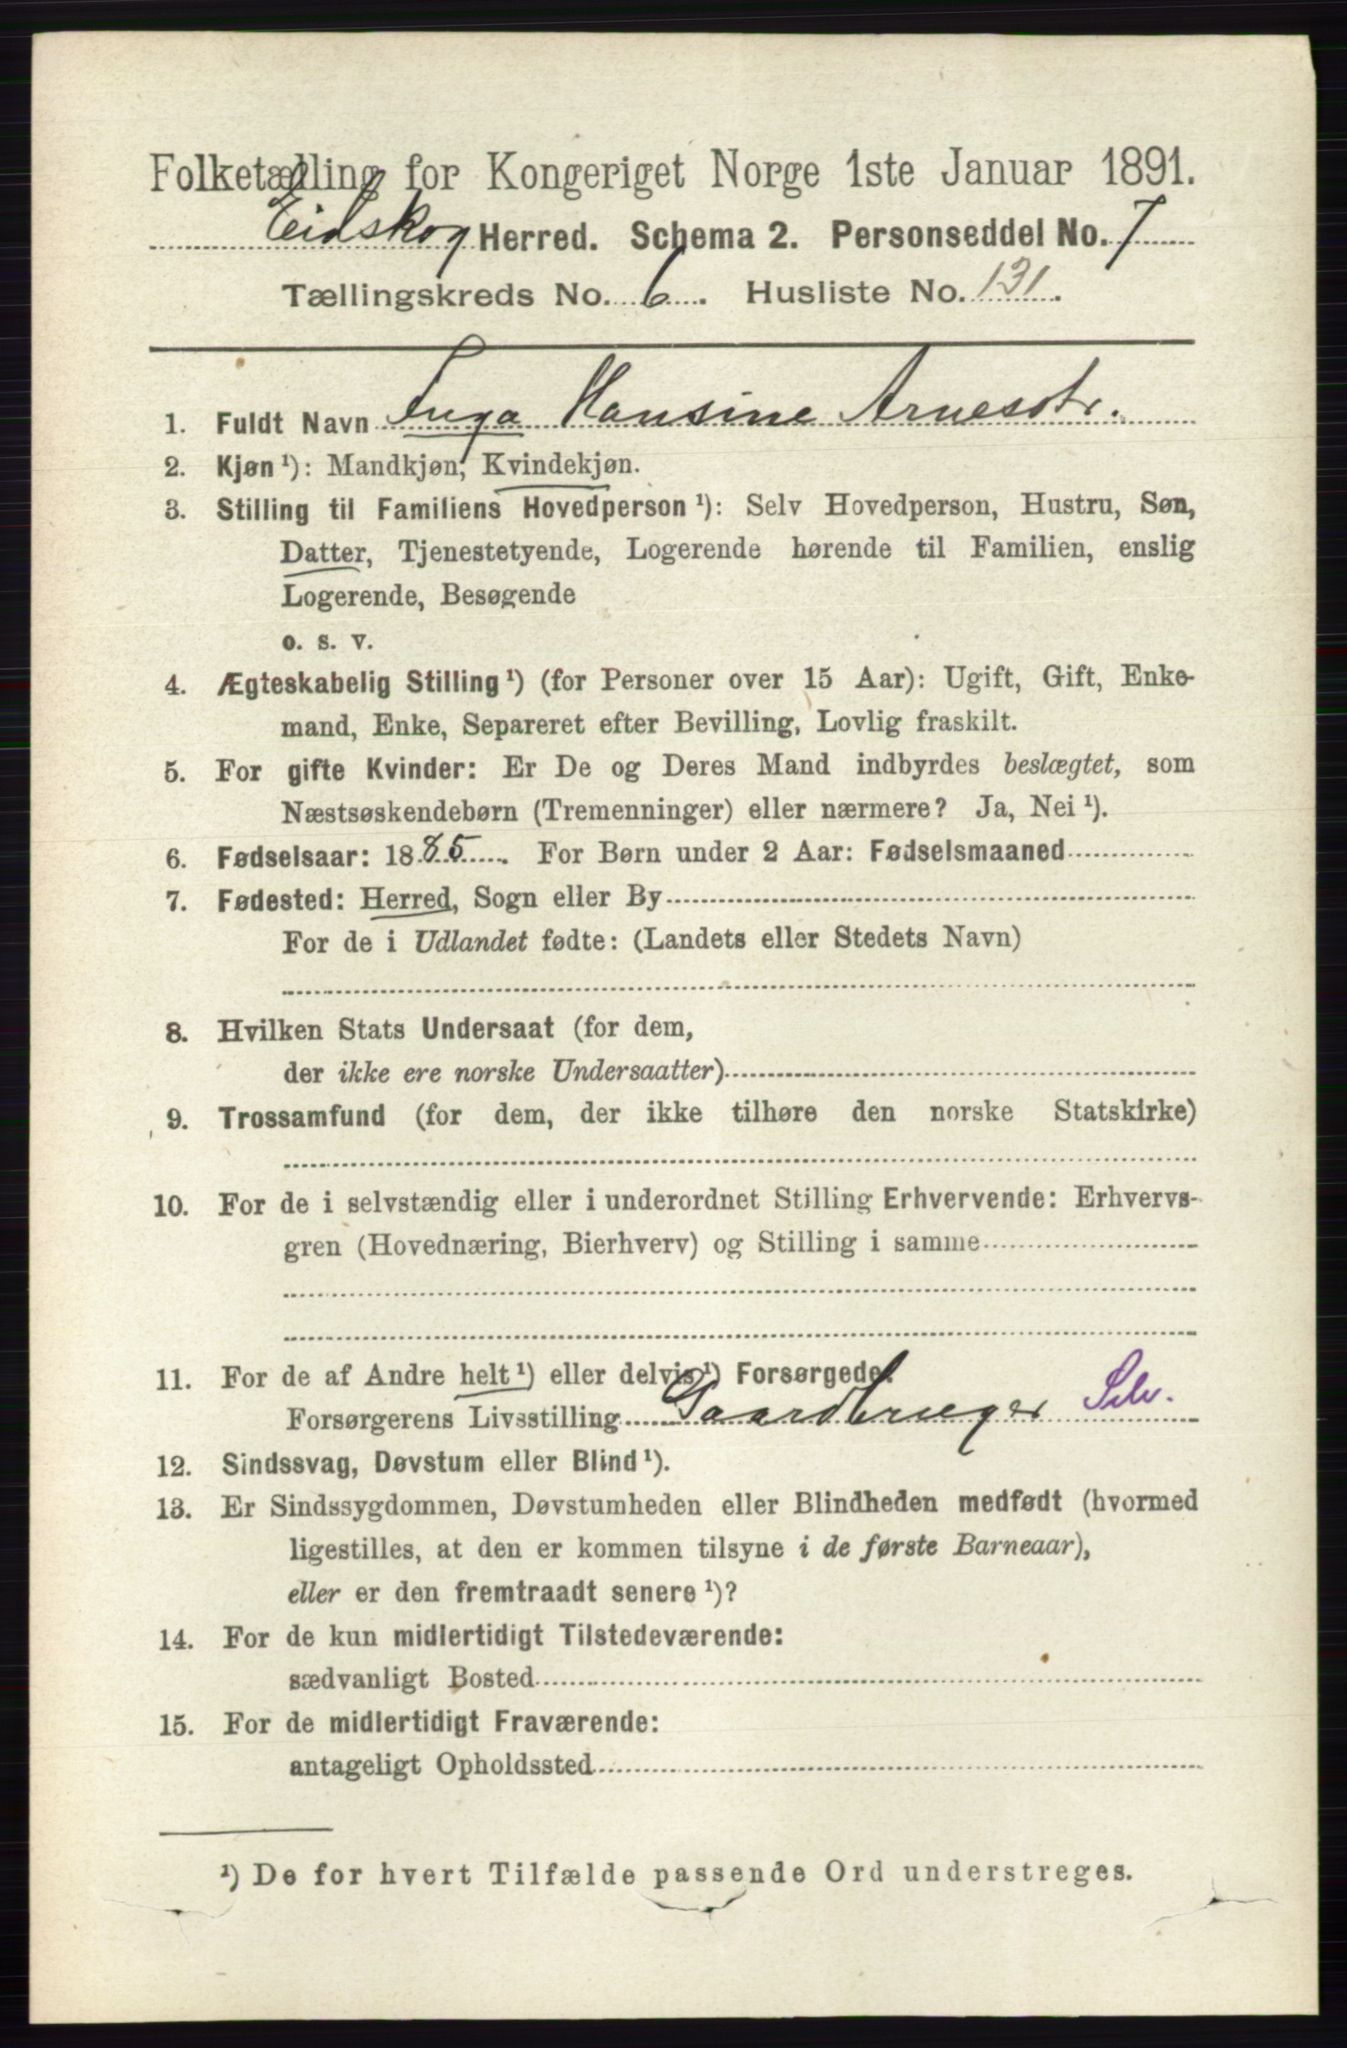 Folketælling for Kongeriget Norge 1ste Januar 1891.
Eidskog Herred. Schema 2. Personseddel No. 7
Tællingskreds No. 6. Husliste No. 131.
1. Fuldt Navn Inga Hansine Arnesdtr.
2. Kjøn¹): Mandkjøn, Kvindekjøn.
3. Stilling til Familiens Hovedperson¹): Selv Hovedperson, Hustru, Søn,
Datter, Tjenestetyende, Logerende hørende til Familien, enslig
Logerende, Besøgende
o. s. v.
4. Ægteskabelig Stilling¹) (for Personer over 15 Aar): Ugift, Gift, Enke-
mand, Enke, Separeret efter Bevilling, Lovlig fraskilt.
5. For gifte Kvinder: Er De og Deres Mand indbyrdes beslægtet, som
Næstsøskendebørn (Tremenninger) eller nærmere? Ja, Nei¹).
6. Fødselsaar: 1885. For Børn under 2 Aar: Fødselsmaaned
7. Fødested: Herred, Sogn eller By
For de i Udlandet fødte: (Landets eller Stedets Navn)
8. Hvilken Stats Undersaat (for dem,
der ikke ere norske Undersaatter)
9. Trossamfund (for dem, der ikke tilhøre den norske Statskirke)
10. For de i selvstændig eller i underordnet Stilling Erhvervende: Erhvervs-
gren (Hovednæring, Bierhverv) og Stilling i samme
11. For de af Andre helt¹) eller delvis¹) Forsørgede:
Forsørgerens Livsstilling Gaardbruger Selv.
12. Sindssvag, Døvstum eller Blind¹).
13. Er Sindssygdommen, Døvstumheden eller Blindheden medfødt (hvormed
ligestilles, at den er kommen tilsyne i de første Barneaar),
eller er den fremtraadt senere¹)?
14. For de kun midlertidigt Tilstedeværende:
sædvanligt Bosted
15. For de midlertidigt Fraværende:
antageligt Opholdssted
¹) De for hvert Tilfælde passende Ord understreges.